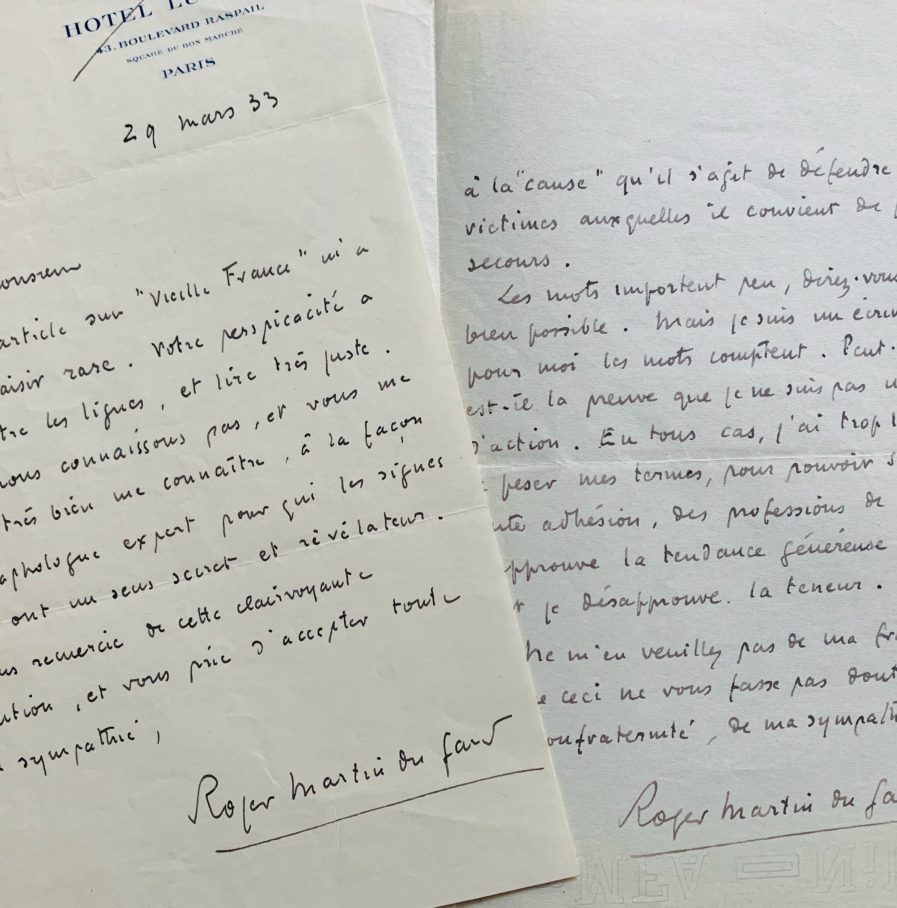 HOTEL LU
43, BOULEVARD RASPAIL
SQUARE DU BON MARCHÉ
PARIS
29 mars 33
onsieur
article sur "Vieille France" m'a
aisir rare. Votre perspicacité a
tre les lignes, et lire très juste.
nous connaissons pas, et vous me
très bien me connaître, à la façon
aphologue expert pour qui les signes
ont un sens secret et révélateur.
us remercie de cette clairvoyante
ution, et vous prie d'accepter toute
sympathie,
Roger Martin du Gard
à la "cause" qu'il s'agit de défendre
victimes auxquelles il convient de p
secours.
Les mots importent peu, direz-vous
bien possible. Mais je suis un écriv
pour moi les mots comptent. Peut-
est-ce la preuve que je ne suis pas u
d'action. En tous cas, j'ai trop l
peser mes termes, pour pouvoir s
ute adhésion, des professions de
approuve la tendance généreuse
t je désapprouve la teneur.
Ne m'en veuillez pas de ma fra
e ceci ne vous fasse pas dout
onfraternité, de ma sympath
Roger Martin du Ga